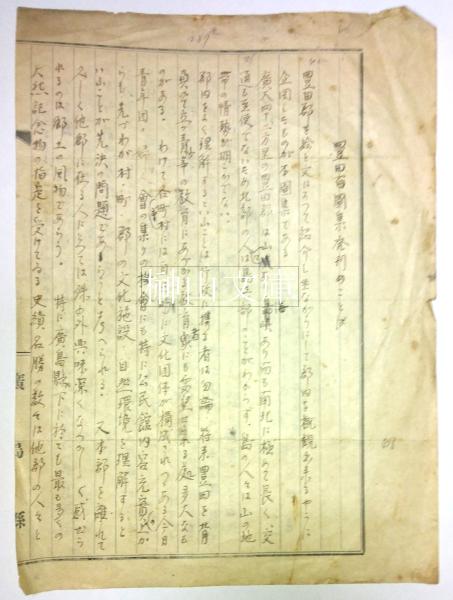 豊田百図集発刊のことば
豊田郡を絵と文によって紹介し坐ながらにして郡内を概観出来るやうに
企図したものが本図集である
廣大四十二方里の豊田郡は山あり島あり而も南北に極めて長く、交
通も至便でないため北部の人は島のことがわからず、島の人々は山の地
帯の情勢が明かでない。
郡内をよく理解するといふことは行政に携る者は勿論、将来豊田を背
負って立つ青年の教育にあたる教育者にも希望される処多大なも
のがある。わけても各町村には文化団体が構成されてある今日
青年団、会の集りの機会にも特に公民館内容充実
らも、先づわが村・町・郡の文化施設、自然環境を理解する
いふことが先決の問題であらうと考へられる。又本郡を離れて
久しく他郡に在る人にとっては殊の外興味深くなつかしく感ぜら
れるのは郷土の風物であらう。共に廣島縣下に於ても最も多くの
天然記念物の指定を受けてゐる史蹟名勝の数々は他郡の人々と
廣島縣
神田文庫